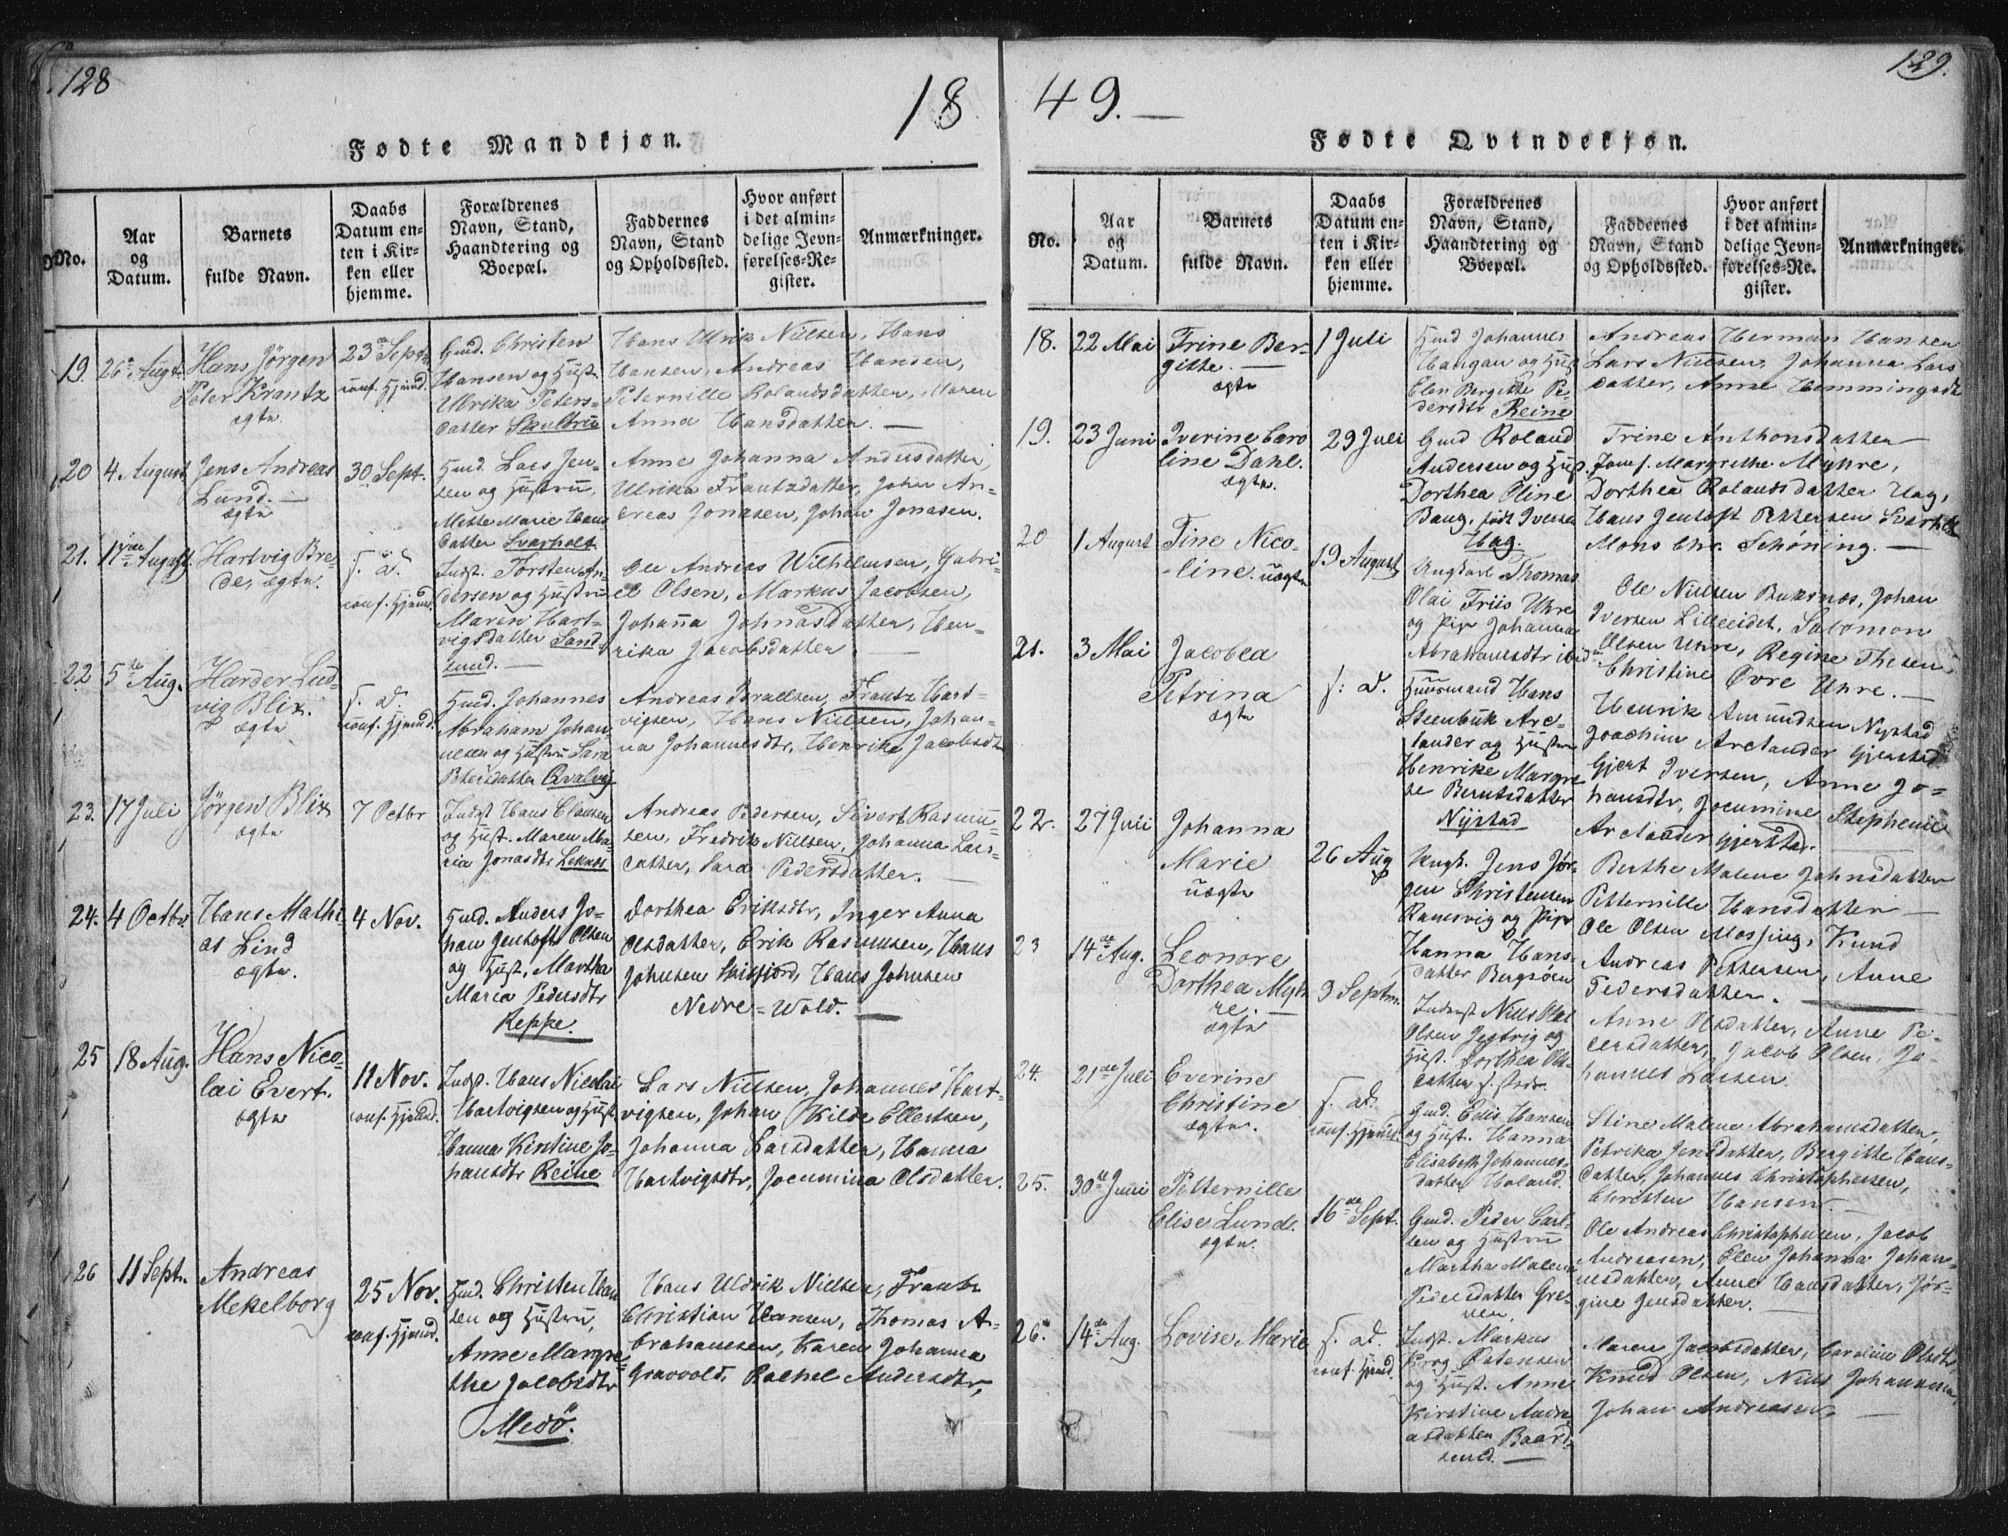 128
18
Fødte Mandkjøn.
No.
Aar
og
Datum.
Barnets
fulde Navn.
Daabs
Datum en-
ten i Kir-
ken eller
hjemme.
Forældrenes
Navn, Stand,
Haandtering og
Boepæl.
Faddernes
Navn, Stand
og Opholdssted.
Hvor anført
i det almin-
delige Jevn-
førelses-Re-
gister.
Anmærkninger.
19. 26 Augt.
Hans Jørgen
Peter Krantz
ægte
23de Septr.
conf. Hjemd.
Gmd. Christen
Hansen og Hustr.
Ulrika Peters-
datter
Hans Ulrik Nielsen, Hans
Hansen, Andreas Hansen,
Peternille Rolandsdatter, Maren
Anna Hansdatter. —
20 4. August
Jens Andreas
Lund. —
ægte
30 Sept.
Hmd. Lars Jen-
sen og Hustru,
Mette Marie Hans
datter Svarholt
Anne Johanna Andersdatter,
Ulrika Frantzdatter, John An-
dreas Jonasen, Johan Jonasen.
21. August
Hartvig Bre-
de, ægte.
f. d.
conf. Hjemd.
Indst. Torsten An-
dersen og Hustru
Maren Hart-
vigsdatter Sand-
sund. —
Ole Andreas Wilhelmsen, Gabri-
el Olsen, Markus Jacobsen,
Johanna Johnasdatter, Hen-
rika Jacobsdatter —
22 5te Aug.
Harder Lud-
vig Blix.
ægte
f. d.
conf. Hjemd.
Hmd. Johannes
Abraham Johan-
nesen og Hustru Sara
Petersdatter Qvalvig
Andreas Israelsen, Frantz Hart-
vigsen, Hans Nielsen, Johan-
na Johannesdtr, Henrika Jacobsdtr
23. 17 Juli
Jørgen Blix
ægte
7 Octbr
Indst Hans Clausen
og Hust. Maren Ma-
ria Jonasdtr Leknes
Andreas Pedersen, Sivert Rasmu-
sen, Fredrik Nielsen, Johanna Lars-
datter, Sara Pedersdatter. —
24. 4 Octbr
Hans Mathi-
as Lind
ægte.
4 Nov.
Hmd. Anders Jo-
han Jentoft Olsen
og Hust. Martha
Maria Pedersdtr
Reppe.
Dorthea Eriksdtr, Inger Anna
Olsdatter, Erik Rasmusen, Hans
Johnsen, Hans Johnsen
Nedre-Wold. —
25 18 Aug.
Hans Nico-
lai Evert.
ægte
11 Nov.
conf. Hjemd.
Indst. Hans Nicolai
Hartvigsen og Hust
Hanna Kirstine Jo-
hansdtr Reine
Lars Nielsen, Johannes Hart-
vigsen, Johan Kilde Ellertsen,
Johanna Larsdatter, Hanna
Hartvigsdtr, Jocumina Olsdatter.
26 11 Septr.
Andreas
Mekelborg
25 Nov.
conf. Hjemd.
Hmd. Christen Han
sen og Hustru,
Anne Margre-
the Jacobsdtr
Medø.
Hans Uldrik Nielsen, Frantz
Christian Hansen, Thomas A-
brahamsen, Karen Johanna
Gravvold, Rachel Andersdtr,
129.
49. —
Fødte Qvindekjøn.
No.
Aar
og
Datum.
Barnets
fulde Navn.
Daabs
Datum en-
ten i Kir-
ken eller
hjemme.
Forældrenes
Navn, Stand,
Haandtering og
Boepæl.
Faddernes
Navn, Stand
og Opholdssted.
Hvor anført
i det almin-
delige Jevn-
førelses-Re-
gister.
Anmærkninger.
18. 22 Mai
Trine Ber-
gitte. —
ægte
1 Juli
Hmd Johannes
Haagan og Hust
Elen Bergitte Pe-
dersdtr Reine
Andreas Herman Hansen
Lars Nielsen, Johanna Lars
datter, Anne Hemmingsdtr
19. 23 Juni
Iverine Caro
line Dahl.
ægte.
29 Juli
Gmd Roland
Andersen og Hust.
Dorthea Oline
Bang, født Iversen
Hag.
Trine Anthonsdatter
Jomf. Margrethe Myhre,
Dorthea Rolandsdatter Hag,
Hans Jentoft Pettersen Svarholt
Mons Chr. Schøning. —
20 1 August
Tine Nico-
-line. uægte
19 August
Ungkarl Thomas
Olai Friis Uhre
og Pige Johanna
Abrahamsdtr ibid
Ole Nielsen Buksnes, Johan
Iversen Lilleeidet, Salomon
Olsen Uhre, Regine Thesen
Christine Øvre Uhre. —
21. 3 Mai
Jacobea
Petrina
ægte
f: d.
Huusmand Hans
Steenbuk Arc-
tander og Hustru
Henrike Margre
te Berntsdatter
Nystad
Henrik Amundsen Nystad
Joachim Arctander Gjerstad
Gjert Iversen, Anne Jo-
hansdtr, Jocumine Stephenie
Arctander Gjerstad.
22. 27 Juli
Johanna
Marie
uægte
26 Aug
Ungk. Jens Jør-
gen Christensen
Ramsvig og Pige
Hanna Hans-
datter Bergsøen
Berthe Malene Johnsdatter
Petternille Hansdatter —
Ole Olsen Mossing, Knud
Andreas Pettersen, Anne
Pedersdatter. —
23 14de Aug.
Leonore
Dorthea Myh
re.
ægte
9 Septm.
Indrst Nills Olai
Olsen Jestvig og
Hust. Dorthea Ols
datter
Anne Olsdatter, Anne Pe-
dersdatter, Jacob Olsen, Jo-
hannes Larsen.
24. 21de Juli
Everine
Christine
ægte.
f. d.
conf. Hjemd.
Gmd. Elis Hansen
og Hust. Hanna
Elisabeth Johannes-
datter Holand.
Stine Malene Abrahamsdatter,
Petrika Jensdatter, Bergitte Hans-
datter, Johannes Christophersen,
Christen Hansen. —
25. 30te Juni
Petternille
Elise Lund.
ægte.
16de Sept.
Gmd. Peder Carl-
sen og Hustru
Martha Malena
Pedersdatter Gre-
nen.
Ole Andreas Christophersen, Jacob
Andreasen, Elen Johanna Johan-
nesdatter, Anne Hansdatter, Jør-
gine Jensdatter. —
26. 14de Aug.
Lovise Marie
f. d.
conf. Hjemd.
Indst. Markus
og Hust. Anne
Kirstine Andre
asdatter Baard-
sund. —
Maren Jacobsdatter, Caroline Olsdtr,
Knud Olsen, Nills Johannesen,
Johan Andreasen. —